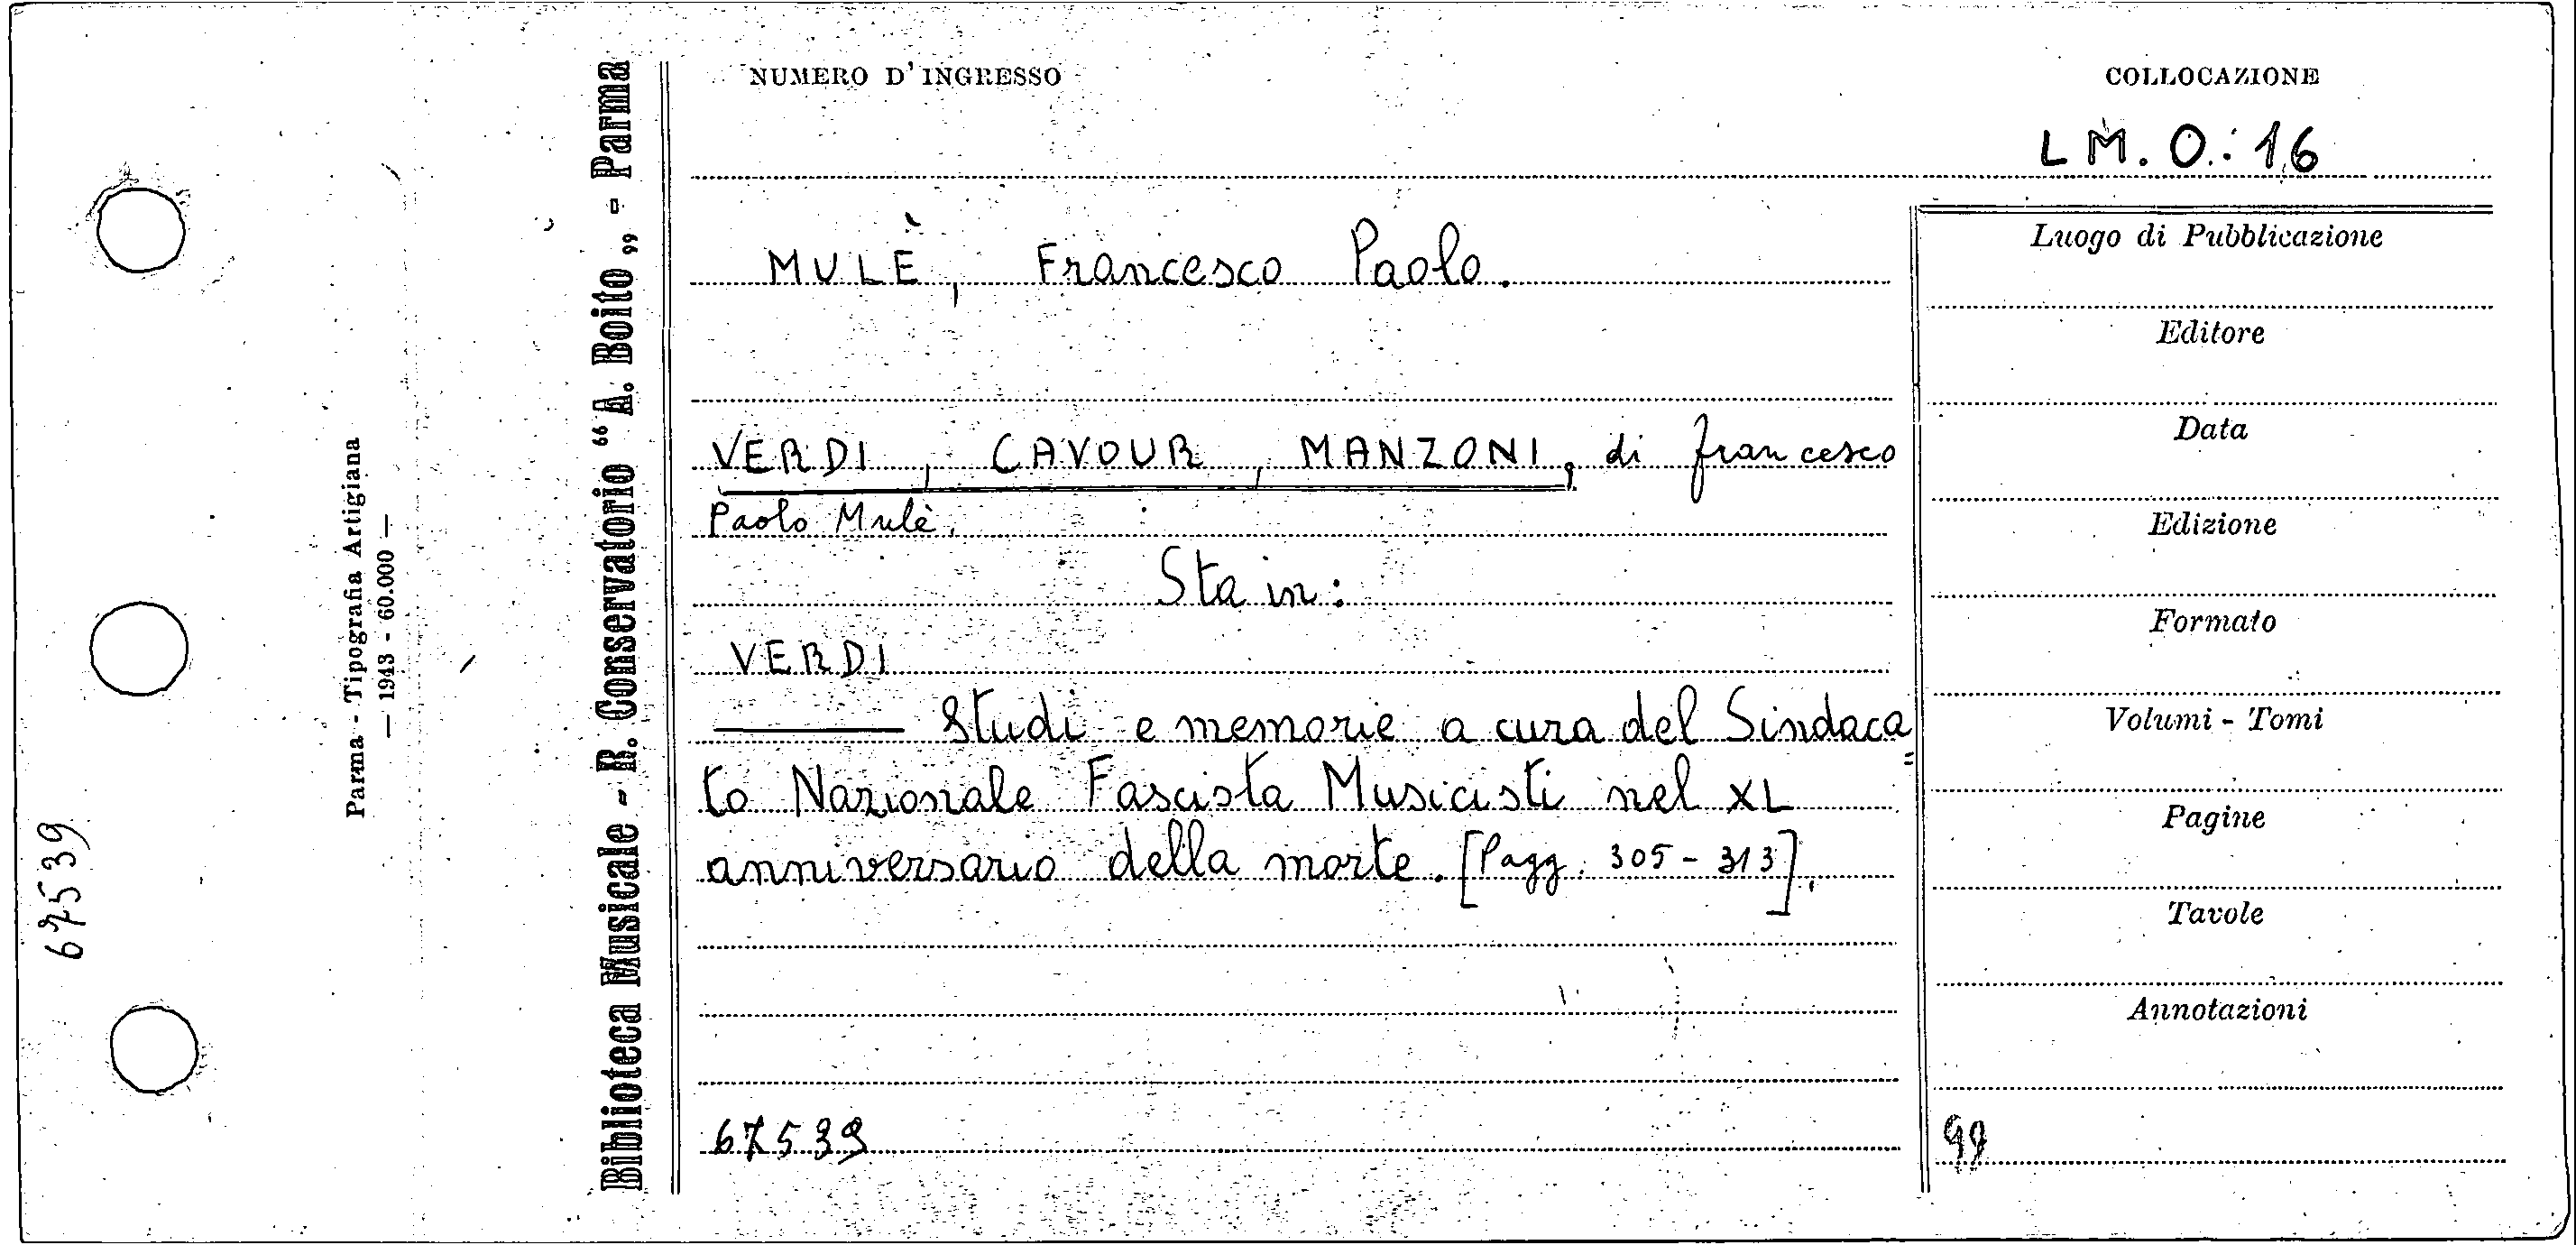 NUMERO D'INGRESSO
COLLOCAZIONE
LM. O. 16
MULÈ, Francesco Paolo.
VERDI, CAVOUR, MANZONI, di Francesco
Paolo Mulè.
Sta in:
VERDI
——— Studi e memorie a cura del Sindaca=
to Nazionale Fascista Musicisti nel XL
anniversario della morte. [Pagg. 305-313].
67539
Luogo di Pubblicazione
Editore
Data
Edizione
Formato
Volumi - Tomi
Pagine
Tavole
Annotazioni
Biblioteca Musicale - R. Conservatorio “A. Boito„ - Parma
Parma - Tipografia Artigiana
— 1943 - 60.000 —
67539